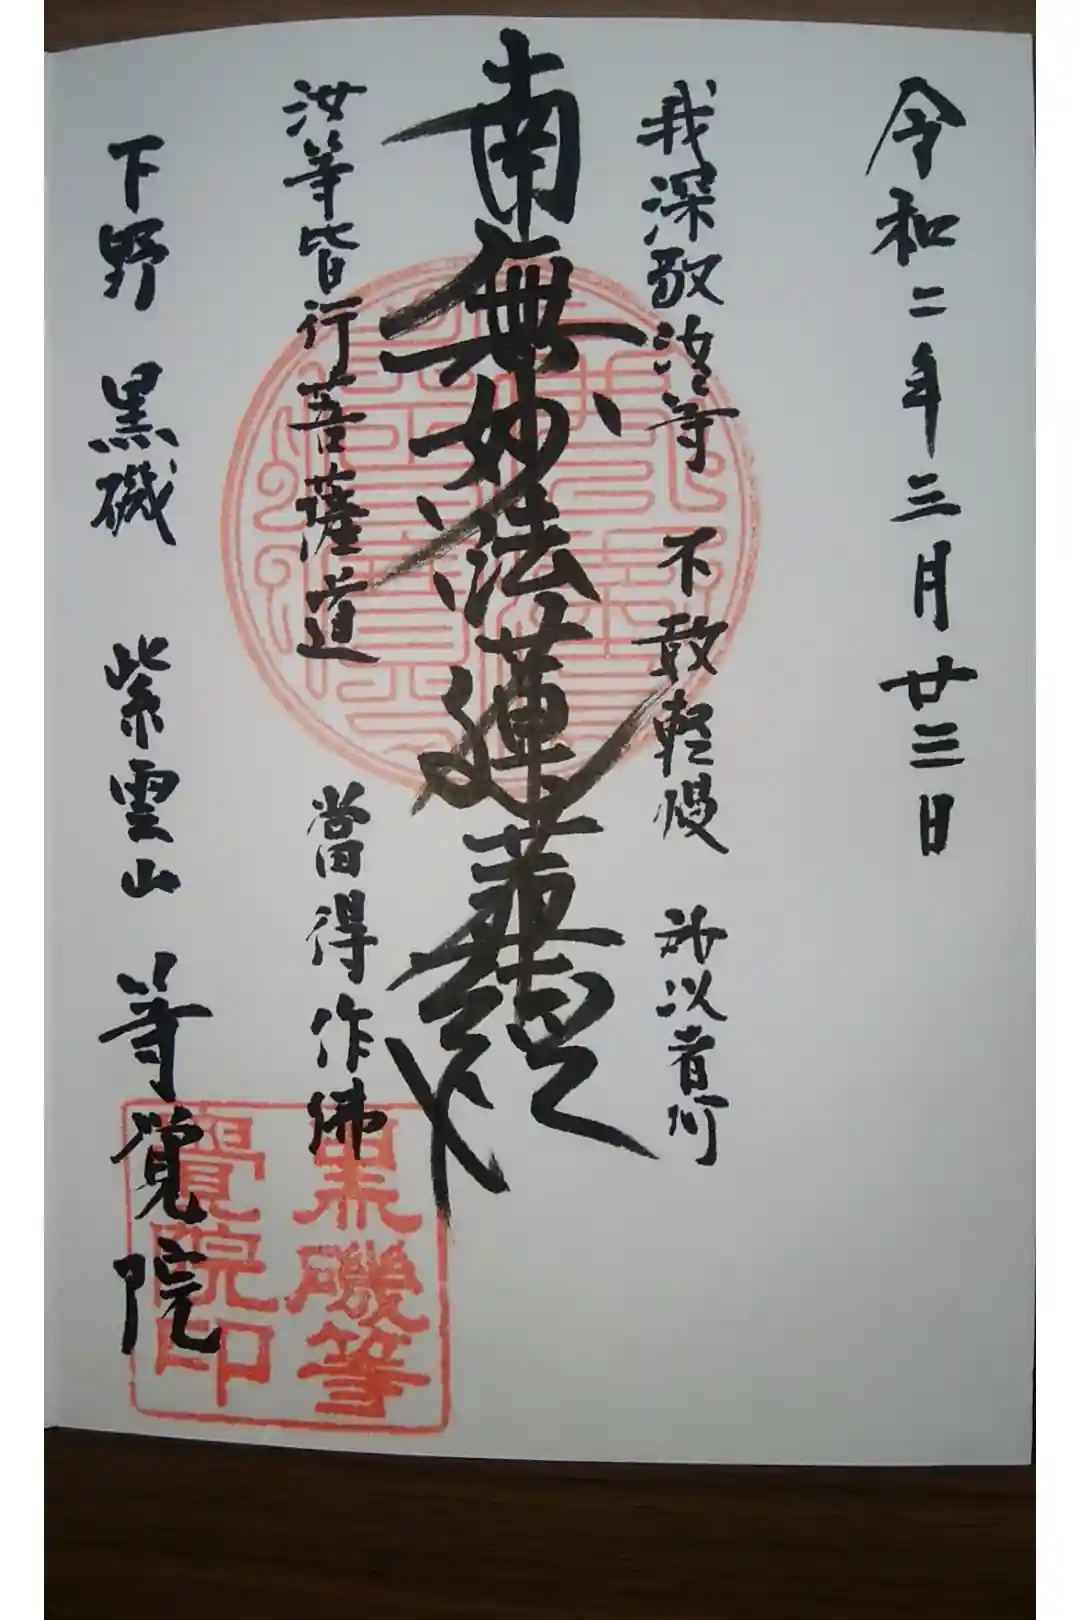 令和二年三月廿三日
我深敬汝等 不敢軽慢 所以者何
南無妙法蓮華經
汝等皆行菩薩道 當得作佛
下野 黒磯 紫雲山 等覚院
黒磯等
覺院印